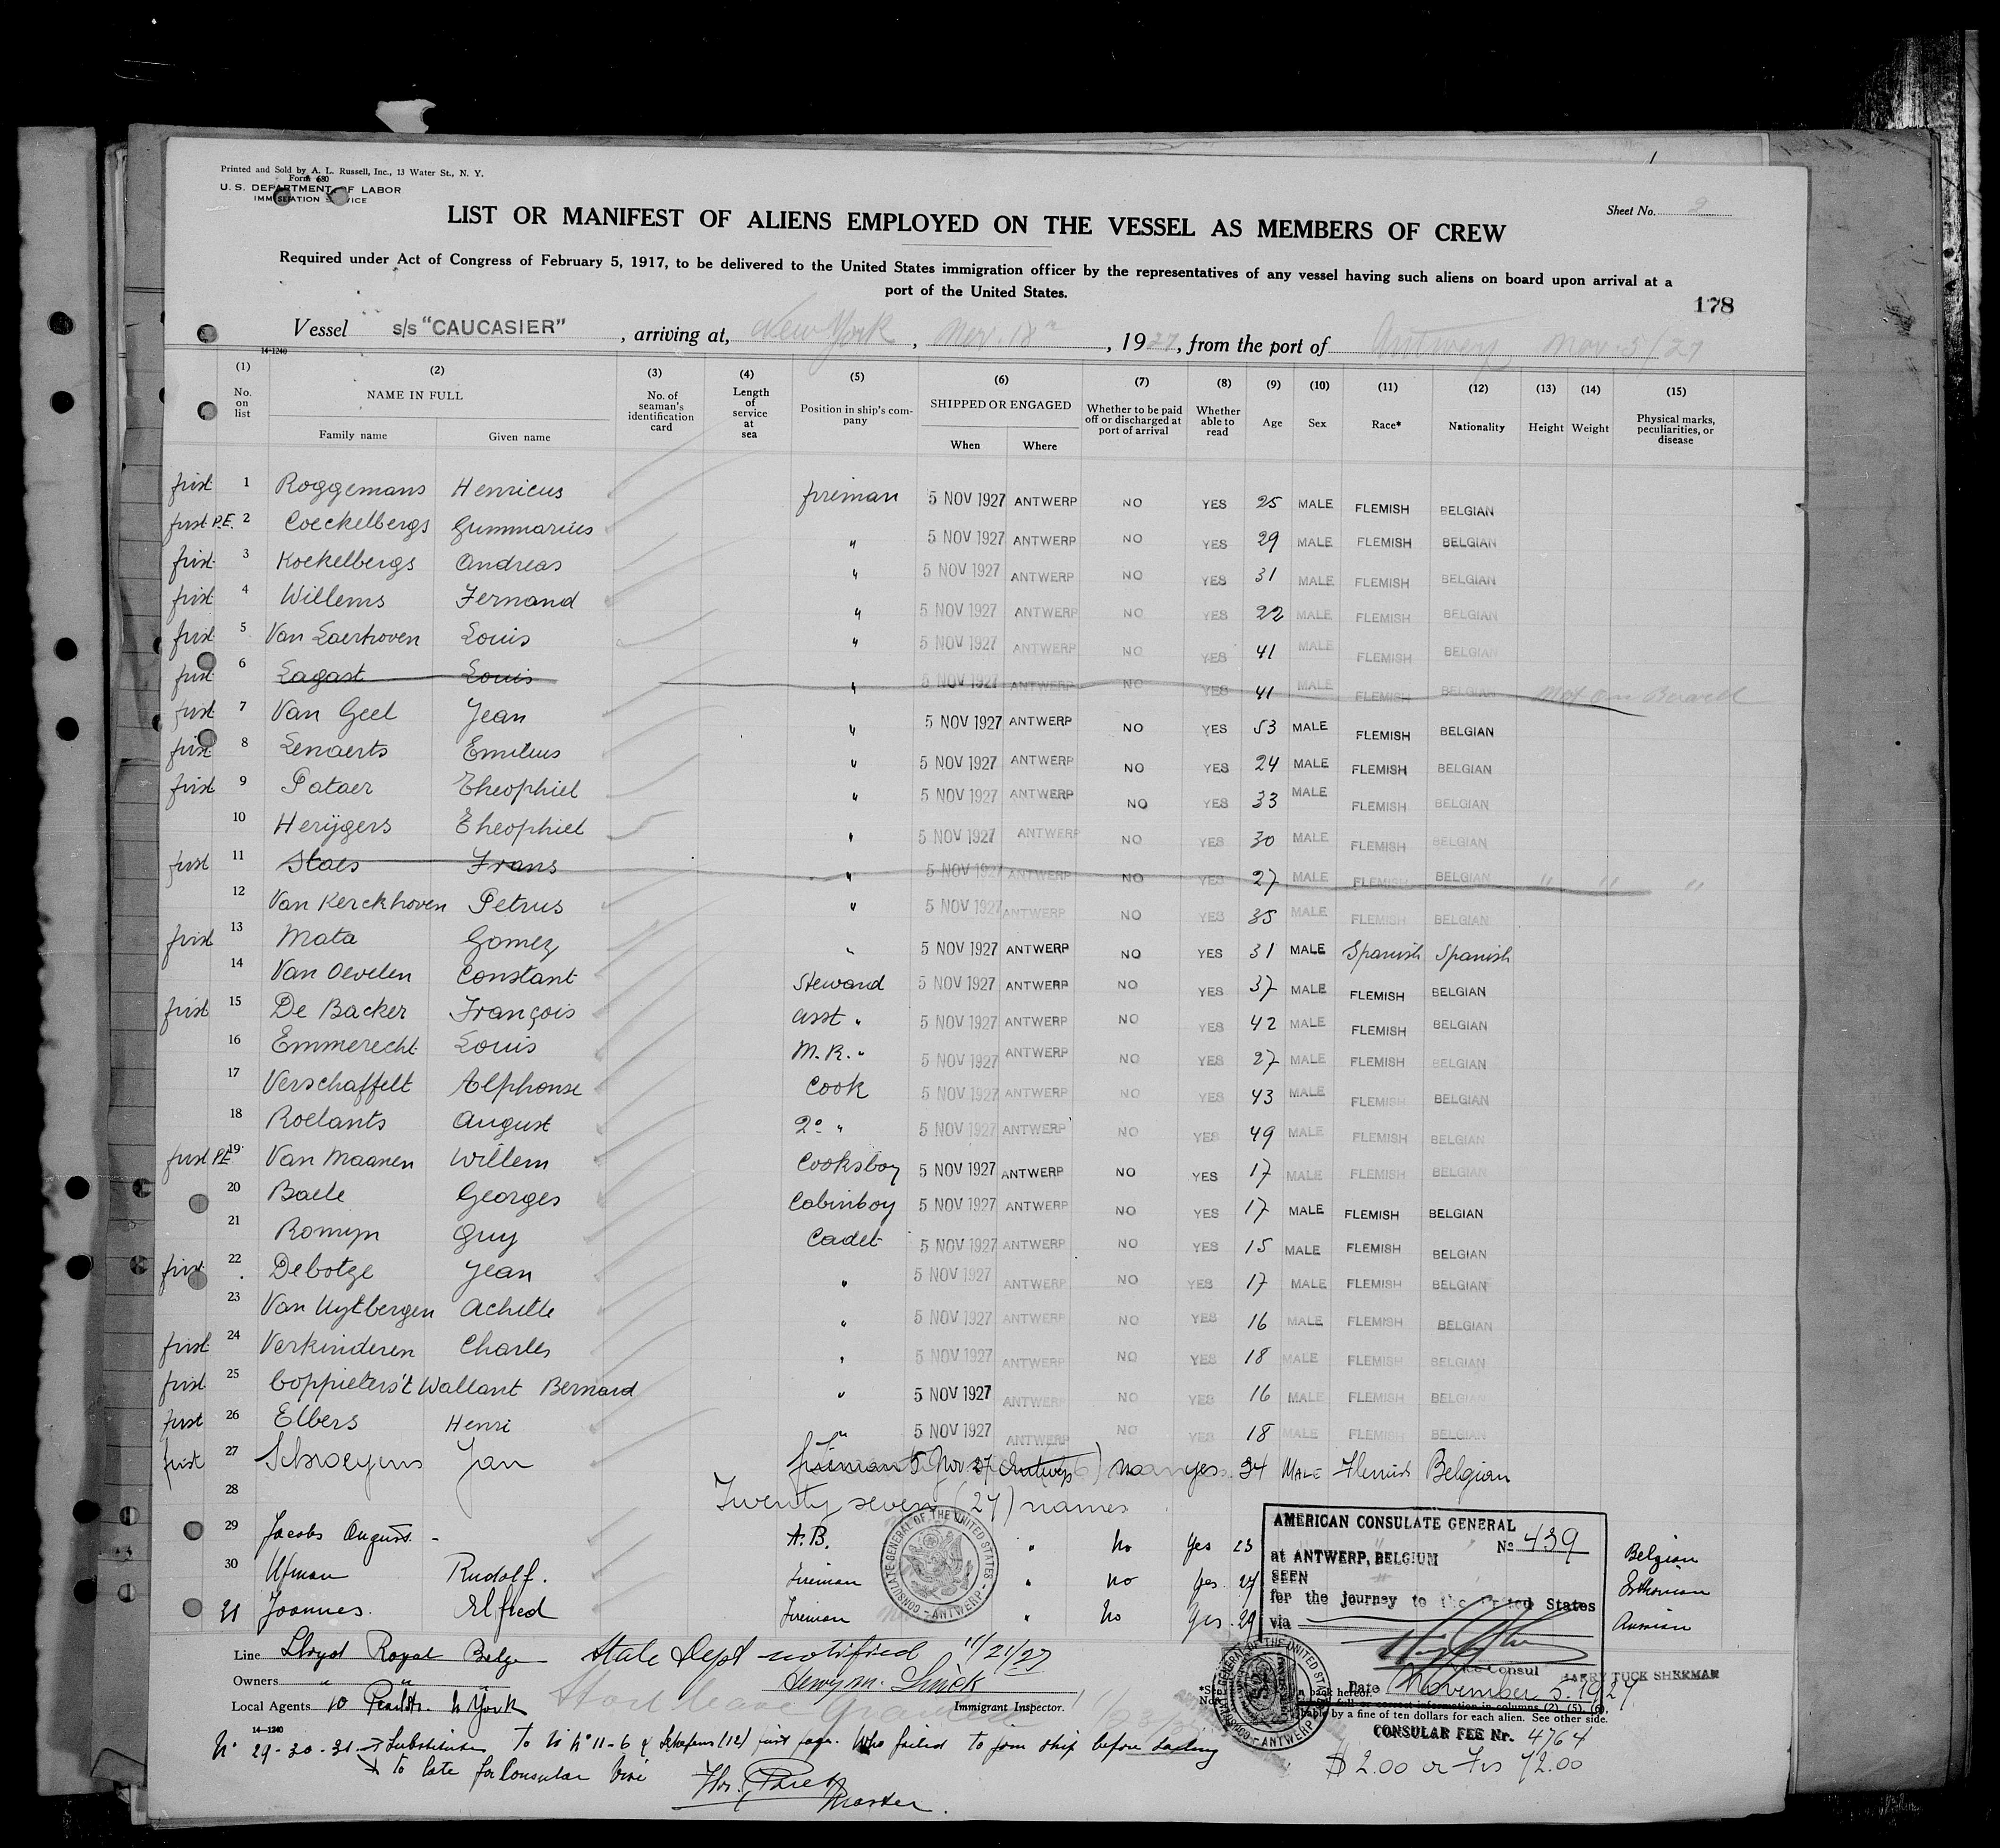 Printed and Sold by A. L. Russell, Inc., 13 Water St., N. Y.
Form 680
U. S. DEPARTMENT OF LABOR
IMMIGRATION SERVICE
Sheet No. 2
LIST OR MANIFEST OF ALIENS EMPLOYED ON THE VESSEL AS MEMBERS OF CREW
Required under Act of Congress of February 5, 1917, to be delivered to the United States immigration officer by the representatives of any vessel having such aliens on board upon arrival at a
port of the United States.
178
Vessel s/s "CAUCASIER", arriving at, New York, Nov. 18th, 1927, from the port of Antwerp, Nov. 5/27
14-1240
(1) No. on list (2) NAME IN FULL Family name Given name (3) No. of seaman's identification card (4) Length of service at sea (5) Position in ship's company (6) SHIPPED OR ENGAGED When Where (7) Whether to be paid off or discharged at port of arrival (8) Whether able to read (9) Age (10) Sex (11) Race* (12) Nationality (13) Height (14) Weight (15) Physical marks, peculiarities, or disease
first 1 Roggemans Henricus fireman 5 NOV 1927 ANTWERP NO YES 25 MALE FLEMISH BELGIAN
first P.E. 2 Coeckelbergs Gummarius " 5 NOV 1927 ANTWERP NO YES 29 MALE FLEMISH BELGIAN
first 3 Kockelbergs Andreas " 5 NOV 1927 ANTWERP NO YES 31 MALE FLEMISH BELGIAN
first 4 Willems Fernand " 5 NOV 1927 ANTWERP NO YES 22 MALE FLEMISH BELGIAN
first 5 Van Laerhoven Louis " 5 NOV 1927 ANTWERP NO YES 41 MALE FLEMISH BELGIAN
first 6 Lagast Louis " 5 NOV 1927 ANTWERP NO YES 41 MALE FLEMISH BELGIAN Not on Board
first 7 Van Geel Jean " 5 NOV 1927 ANTWERP NO YES 53 MALE FLEMISH BELGIAN
first 8 Lenaerts Emilius " 5 NOV 1927 ANTWERP NO YES 24 MALE FLEMISH BELGIAN
first 9 Pataer Theophiel " 5 NOV 1927 ANTWERP NO YES 33 MALE FLEMISH BELGIAN
10 Herijgers Theophiel " 5 NOV 1927 ANTWERP NO YES 30 MALE FLEMISH BELGIAN
first 11 Staes Frans " 5 NOV 1927 ANTWERP NO YES 27 MALE FLEMISH BELGIAN " " "
12 Van Kerckhoven Petrus " 5 NOV 1927 ANTWERP NO YES 35 MALE FLEMISH BELGIAN
first 13 Mata Gomez " 5 NOV 1927 ANTWERP NO YES 31 MALE Spanish Spanish
14 Van Oevelen Constant Steward 5 NOV 1927 ANTWERP NO YES 37 MALE FLEMISH BELGIAN
first 15 De Backer François asst " 5 NOV 1927 ANTWERP NO YES 42 MALE FLEMISH BELGIAN
16 Emmerecht Louis M.R. " 5 NOV 1927 ANTWERP NO YES 27 MALE FLEMISH BELGIAN
17 Verschaffelt Alphonse Cook 5 NOV 1927 ANTWERP NO YES 43 MALE FLEMISH BELGIAN
18 Roelants August 2º " 5 NOV 1927 ANTWERP NO YES 49 MALE FLEMISH BELGIAN
first P.E. 19 Van Maanen Willem Cooksboy 5 NOV 1927 ANTWERP NO YES 17 MALE FLEMISH BELGIAN
20 Baele Georges Cabinboy 5 NOV 1927 ANTWERP NO YES 17 MALE FLEMISH BELGIAN
21 Romyn Guy Cadet 5 NOV 1927 ANTWERP NO YES 15 MALE FLEMISH BELGIAN
first 22 Debotze Jean " 5 NOV 1927 ANTWERP NO YES 17 MALE FLEMISH BELGIAN
23 Van Uytbergen Achille " 5 NOV 1927 ANTWERP NO YES 16 MALE FLEMISH BELGIAN
first 24 Verkinderen Charles " 5 NOV 1927 ANTWERP NO YES 18 MALE FLEMISH BELGIAN
first 25 Coppieters't Wallant Bernard " 5 NOV 1927 ANTWERP NO YES 16 MALE FLEMISH BELGIAN
first 26 Elbers Henri " 5 NOV 1927 ANTWERP NO YES 18 MALE FLEMISH BELGIAN
first 27 Schroeyens Jan fireman 5 Nov 27 Antwerp no yes 34 MALE Flemish Belgian
28 Twenty seven (27) names
29 Jacobs August - A.B. " No Yes 23 Belgian
30 Ufman Rudolf. Fireman " No Yes 27 Esthonian
31 Joannes. Alfred Fireman " No Yes 29
AMERICAN CONSULATE GENERAL
No 439
at ANTWERP, BELGIUM
SEEN
for the journey to the United States
via
Vice Consul
HARRY TUCK SHERMAN
Date November 5. 1927
CONSULATE GENERAL OF THE UNITED STATES - ANTWERP -
Line Lloyd Royal Belge State Dept notified 11/21/27
Owners " "
Local Agents 10 Pearlstr. N York
Immigrant Inspector.
full or correct information in columns (2), (5), (6),
by a fine of ten dollars for each alien. See other side.
CONSULAR FEE Nr. 4764
$ 2.00 or Frs 72.00
14-1240
No 29-30-31 Substitutes to No 11-6 & Schepens (12) first page. Who failed to join ship before sailing
to late for Consular Visé
Master.